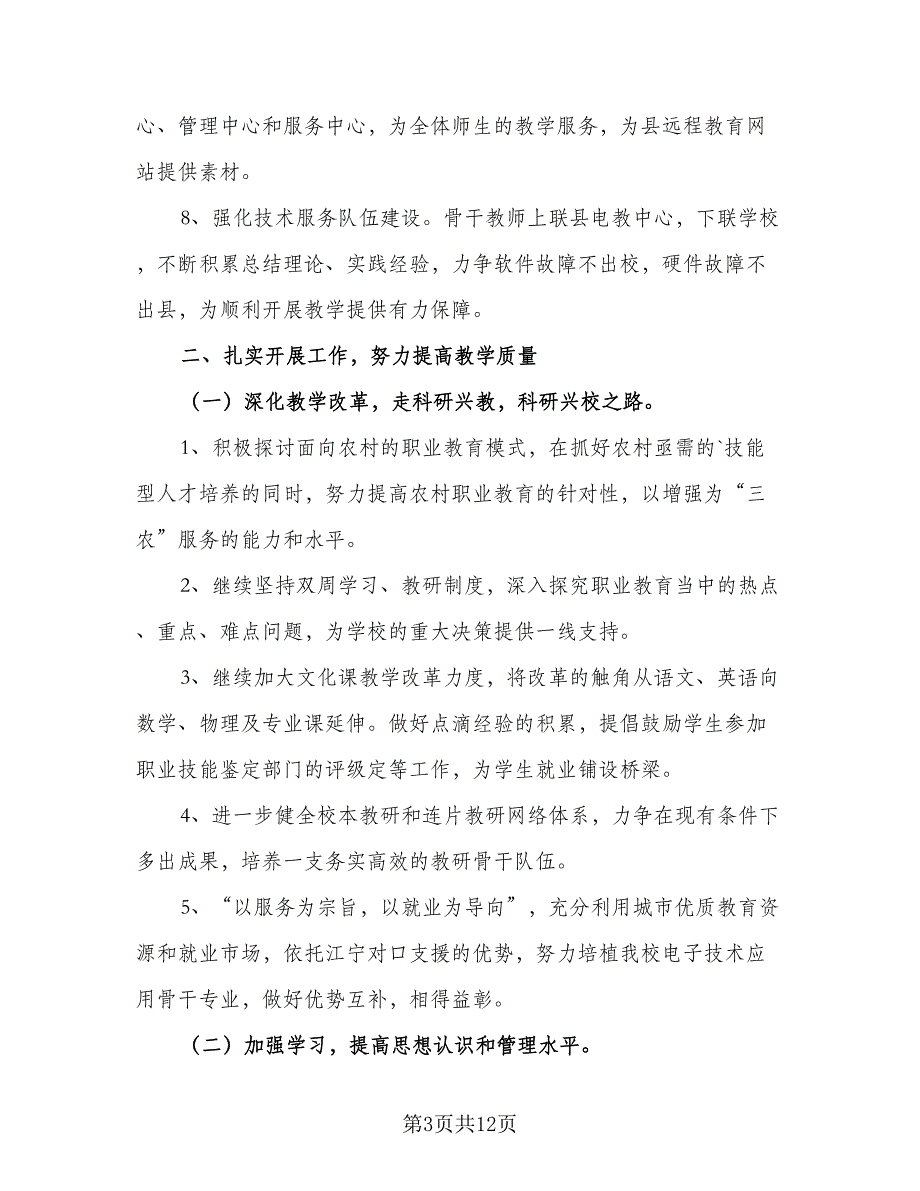 心、管理中心和服务中心，为全体师生的教学服务，为县远程教育网
站提供素材。
8、强化技术服务队伍建设。骨干教师上联县电教中心，下联学校
，不断积累总结理论、实践经验，力争软件故障不出校，硬件故障不
出县，为顺利开展教学提供有力保障。
二、扎实开展工作，努力提高教学质量
（一）深化教学改革，走科研兴教，科研兴校之路。
1、积极探讨面向农村的职业教育模式，在抓好农村亟需的`技能
型人才培养的同时，努力提高农村职业教育的针对性，以增强为“三
农”服务的能力和水平。
2、继续坚持双周学习、教研制度，深入探究职业教育当中的热点
、重点、难点问题，为学校的重大决策提供一线支持。
3、继续加大文化课教学改革力度，将改革的触角从语文、英语向
数学、物理及专业课延伸。做好点滴经验的积累，提倡鼓励学生参加
职业技能鉴定部门的评级定等工作，为学生就业铺设桥梁。
4、进一步健全校本教研和连片教研网络体系，力争在现有条件下
多出成果，培养一支务实高效的教研骨干队伍。
5、“以服务为宗旨，以就业为导向”，充分利用城市优质教育资
源和就业市场，依托江宁对口支援的优势，努力培植我校电子技术应
用骨干专业，做好优势互补，相得益彰。
（二）加强学习，提高思想认识和管理水平。
第3页共12页